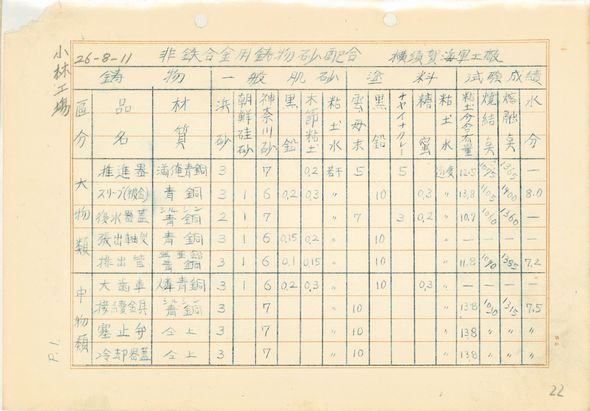 小林工場
26-8-11 非鉄合金用鋳物砂配合 横須賀海軍工廠
鋳物 一般肌砂 塗料 試験成績
区分 品名 材質 浜砂 朝鮮硅砂 神奈川砂 黒鉛 木節粘土 粘土水 雲母末 黒鉛 チャイナクレー 糖蜜 粘土水 粘土分含有量 焼結点 熔融点 水分
大物類
推進器 満俺青銅 3 7 0.2 若干 5 5 適度 12.5 1075 1365 —
スリーブ(被金) 青銅 3 1 6 0.2 0.3 〃 10 0.3 〃 13.8 1105 1400 8.0
復水器蓋 シルジン青銅 2 1 7 〃 7 3 0.2 〃 10.7 1060 1360 —
張出軸受 青銅 3 1 6 0.15 0.2 〃 10 〃 — — — —
排出管 青銅 3 1 6 0.1 0.15 〃 10 〃 11.8 1385 7.2
中物類
大歯車 燐青銅 3 1 6 0.2 0.3 〃 10 0.3 〃 — — — —
接續金具 シルジン青銅 3 7 〃 10 〃 13.8 1315 7.5
塞止弁 仝上 3 7 〃 10 〃 13.8 〃 〃 〃
冷却器蓋 仝上 3 7 〃 10 〃 13.8 〃 〃 〃
P. 1.
22